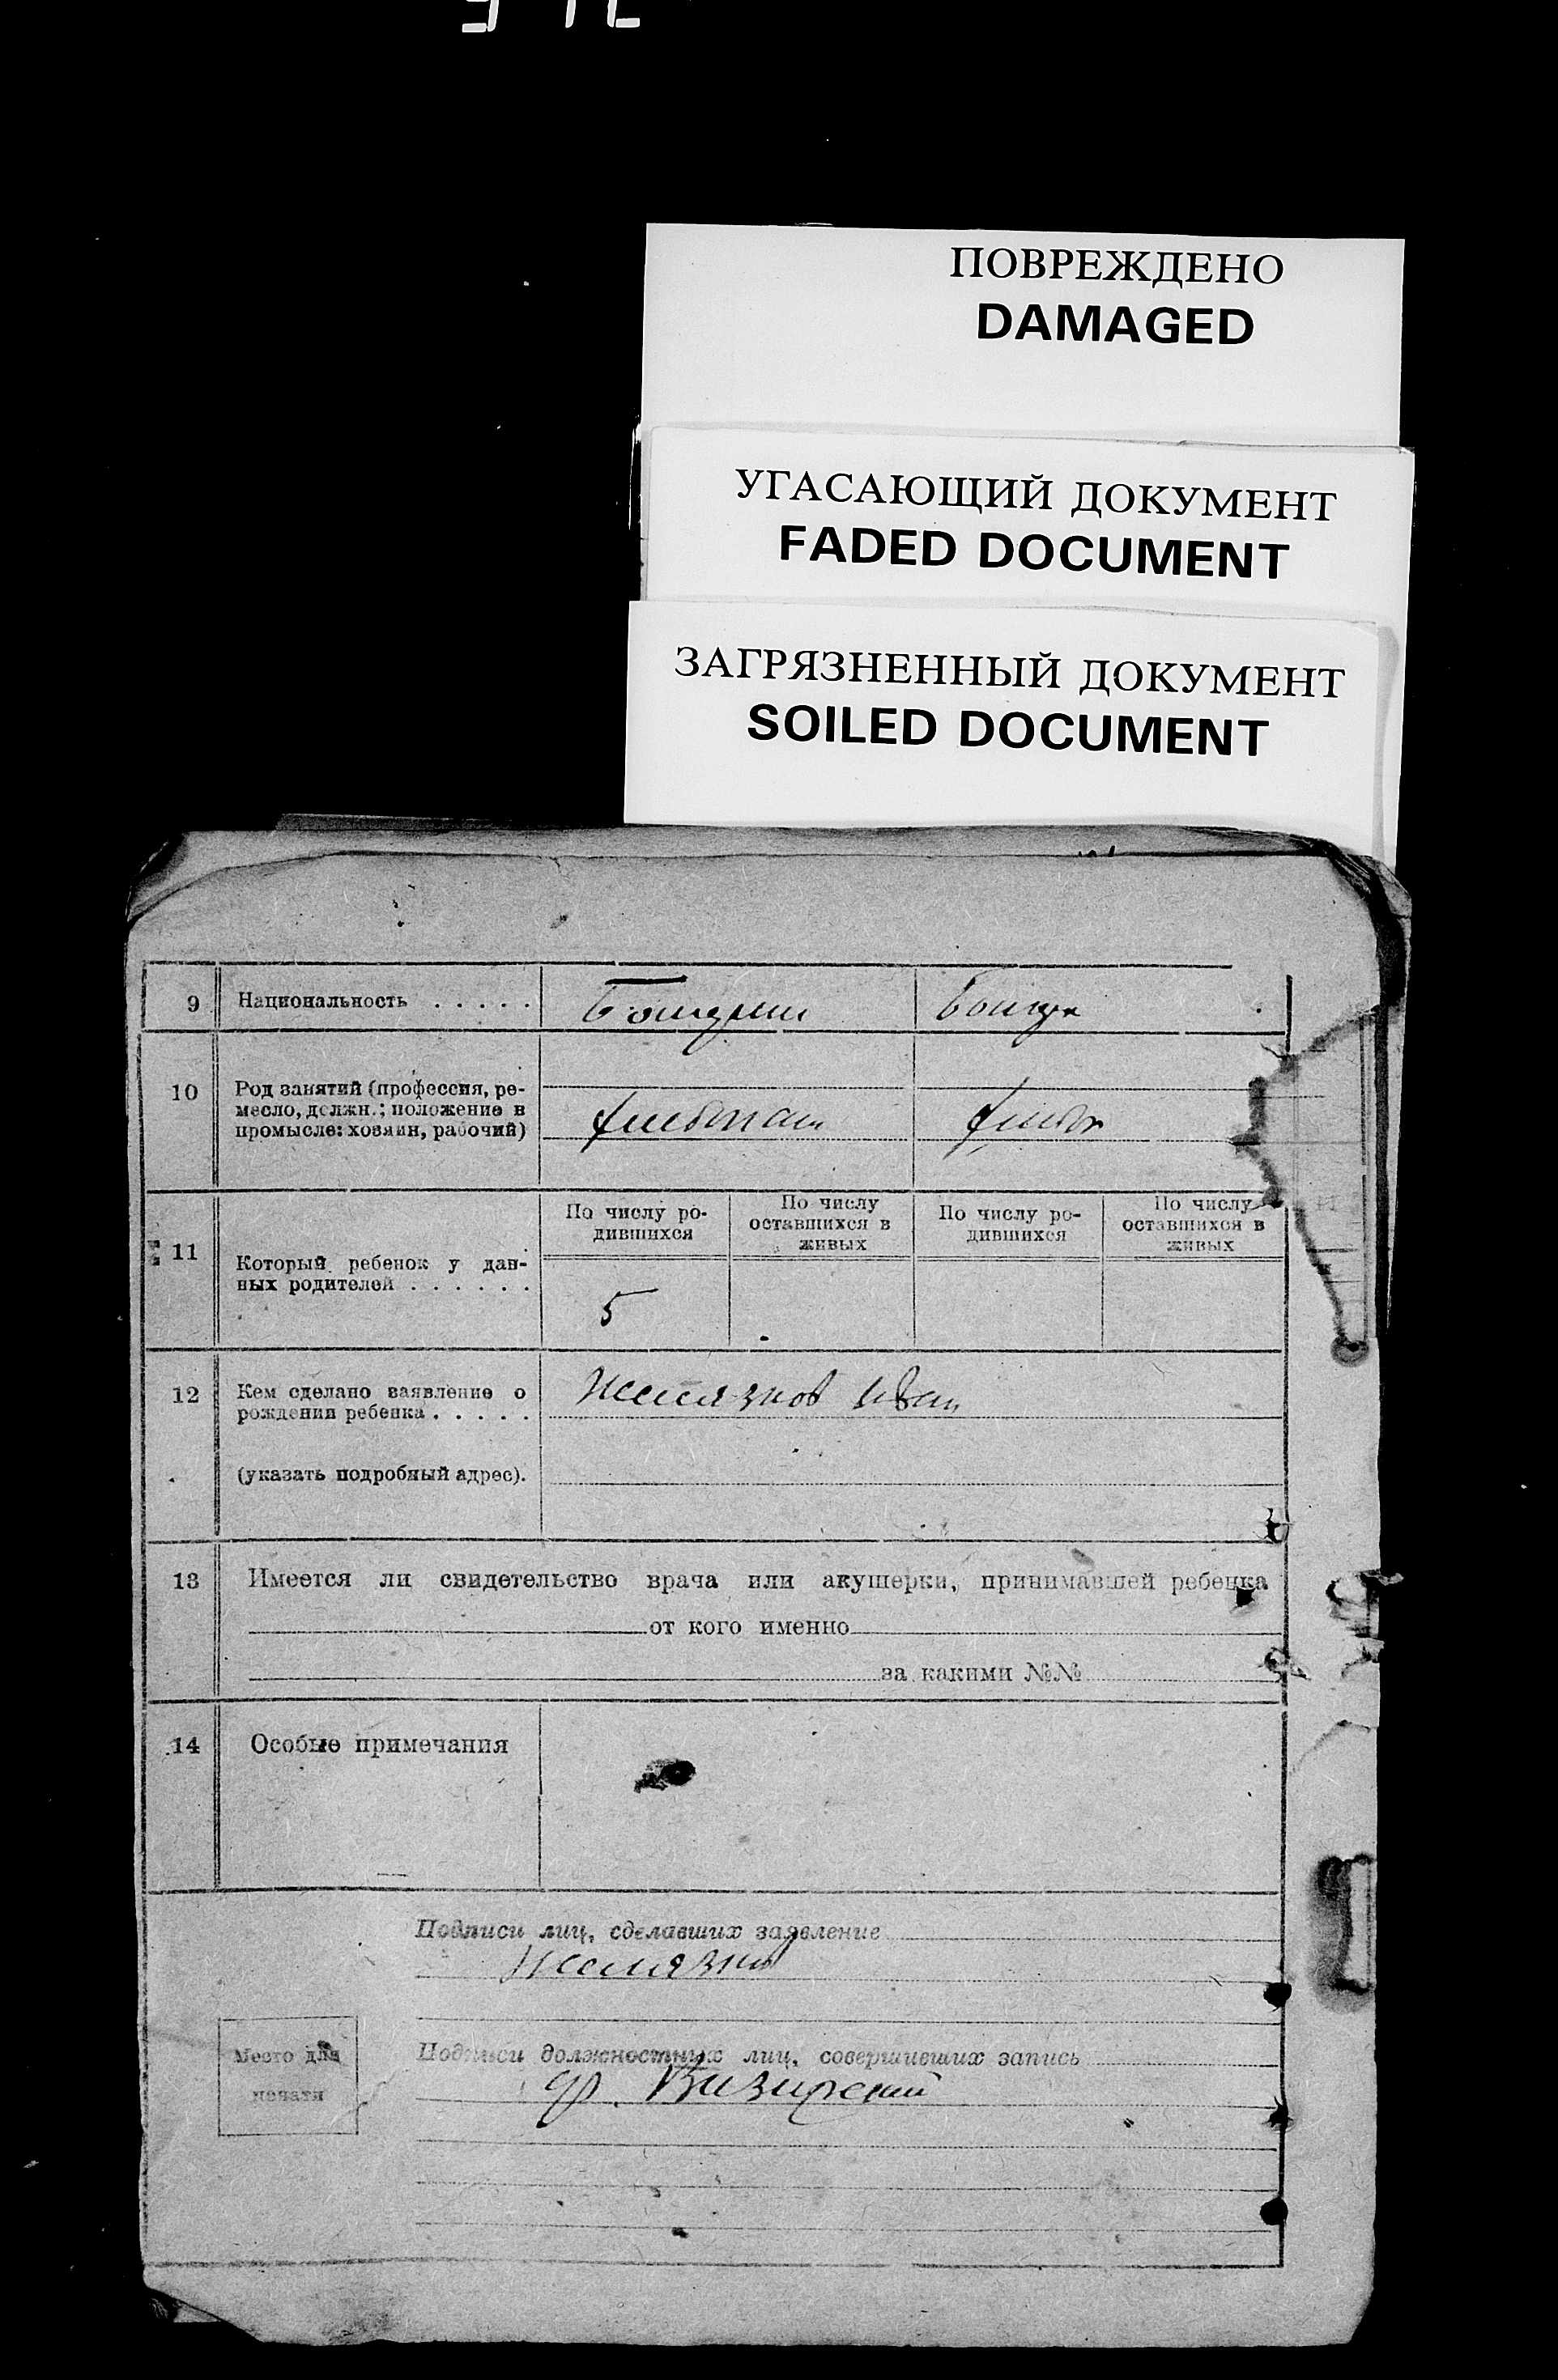 ПОВРЕЖДЕНО
DAMAGED
УГАСАЮЩИЙ ДОКУМЕНТ
FADED DOCUMENT
ЗАГРЯЗНЕННЫЙ ДОКУМЕНТ
SOILED DOCUMENT
9 Национальность . . . . .
10 Род занятий (профессия, ре-
месло, должн.; положение в
промысле: хозяин, рабочий)
хлебопаш хлебоп
По числу ро- По числу По числу ро- По числу
дившихся оставшихся в дившихся оставшихся в
живых живых
11 Который ребенок у дан-
ных родителей . . . . . .
5
12 Кем сделано заявление о
рождении ребенка . . . . .
Желязков Иван
(указать подробный адрес).
13 Имеется ли свидетельство врача или акушерки, принимавшей ребенка
от кого именно
за какими №№
14 Особые примечания
Подписи лиц, сделавших заявление
Желязков
Место для
печати
Подписи должностных лиц, совершивших запись
Визирский